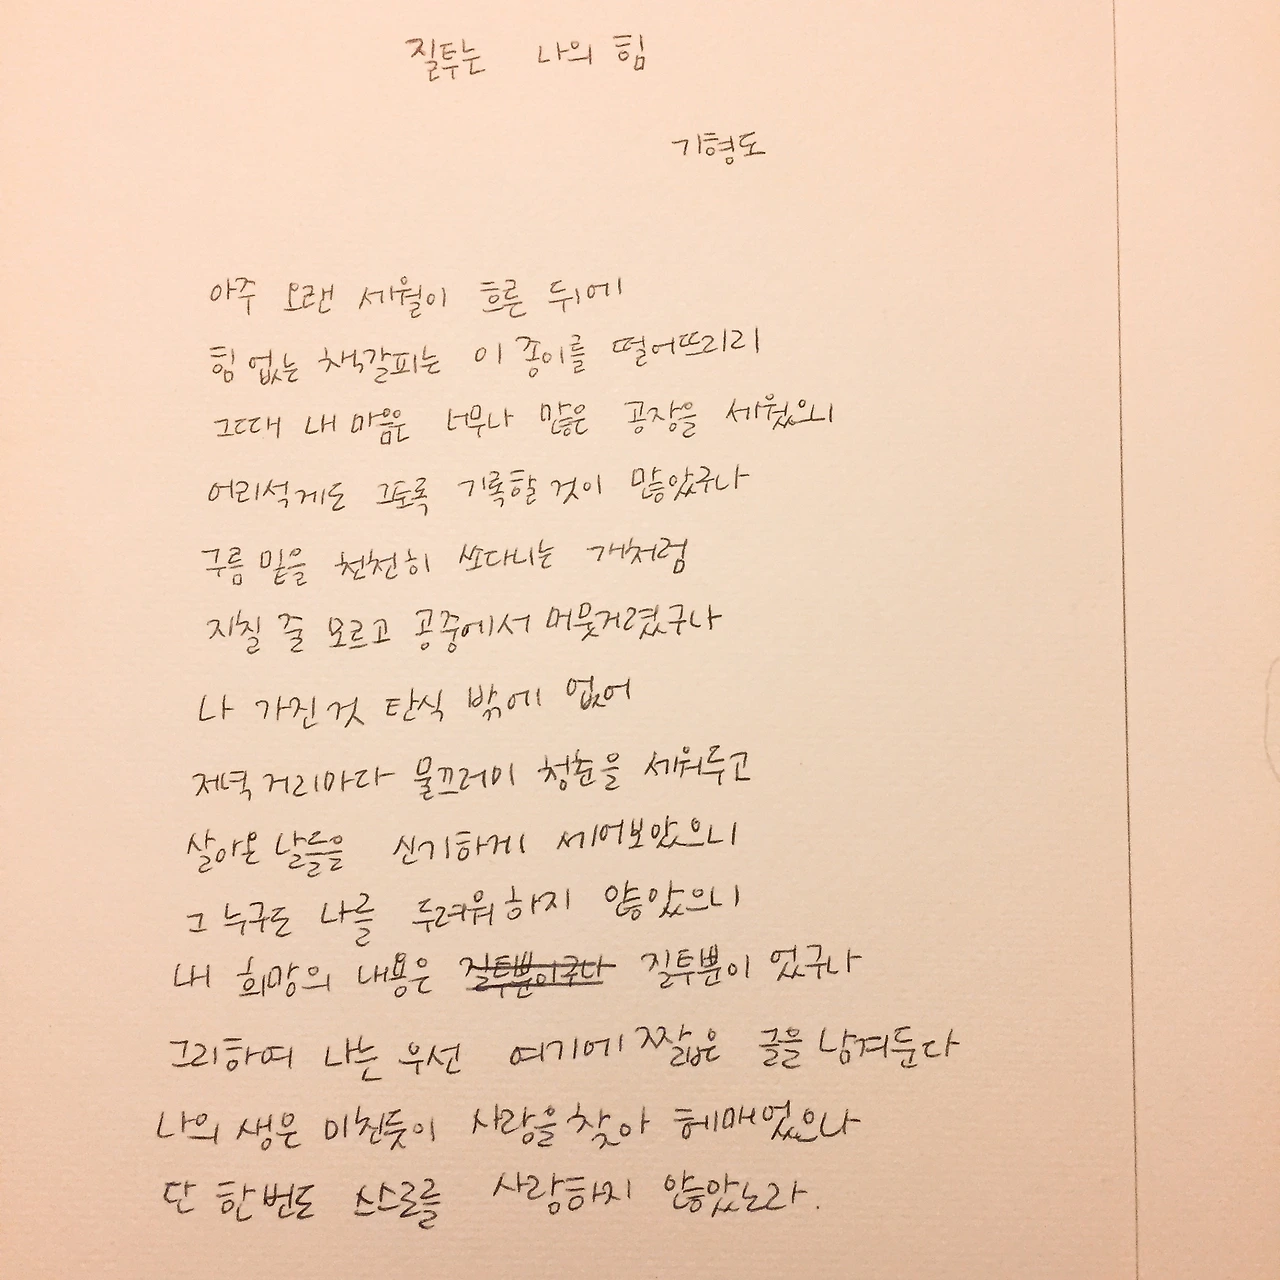 질투는 나의 힘
기형도
아주 오랜 세월이 흐른 뒤에
힘 없는 책갈피는 이 종이를 떨어뜨리리
그때 내 마음은 너무나 많은 공장을 세웠으니
어리석게도 그토록 기록할 것이 많았구나
구름 밑을 천천히 쏘다니는 개처럼
지칠 줄 모르고 공중에서 머뭇거렸구나
나 가진 것 탄식 밖에 없어
저녁 거리마다 물끄러미 청춘을 세워두고
살아온 날들을 신기하게 세어보았으니
그 누구도 나를 두려워 하지 않았으니
내 희망의 내용은 질투뿐이구나 질투뿐이 었구나
그리하여 나는 우선 여기에 짧은 글을 남겨둔다
나의 생은 미친듯이 사랑을 찾아 헤매었으나
단 한번도 스스로를 사랑하지 않았노라.